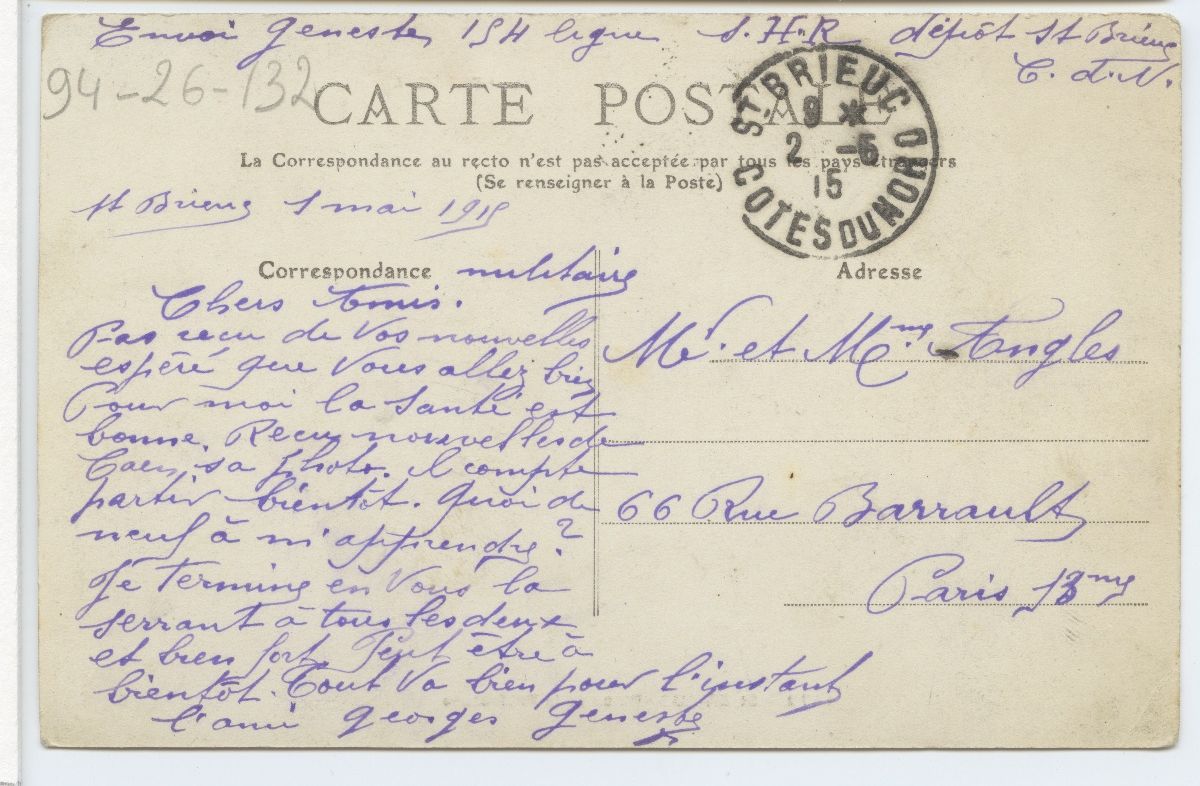 Envoi Geneste, 154 ligne S.H.R dépôt St Brieuc
C. d. N.
94-26-132
CARTE POSTALE
La Correspondance au recto n'est pas acceptée par tous les pays étrangers
(Se renseigner à la Poste)
ST BRIEUC
9 *
2 -5
15
COTES DU NORD
St Brieuc 1 mai 1915
Correspondance militaire
Chers Amis.
Pas reçu de Vos nouvelles
espéré que Vous allez bien
Pour moi la santé est
bonne. Recu nouvelles de
sa photo. il compte
partir bientôt. Quoi de
neuf à m'apprendre?
Je termine en Vous la
serrant à tous les deux
et bien fort. Peut être à
bientôt. Tout va bien pour l'instant
l'ami Georges Geneste
Adresse
Mr. et Mme. Angles
66 Rue Barrault
Paris 13me